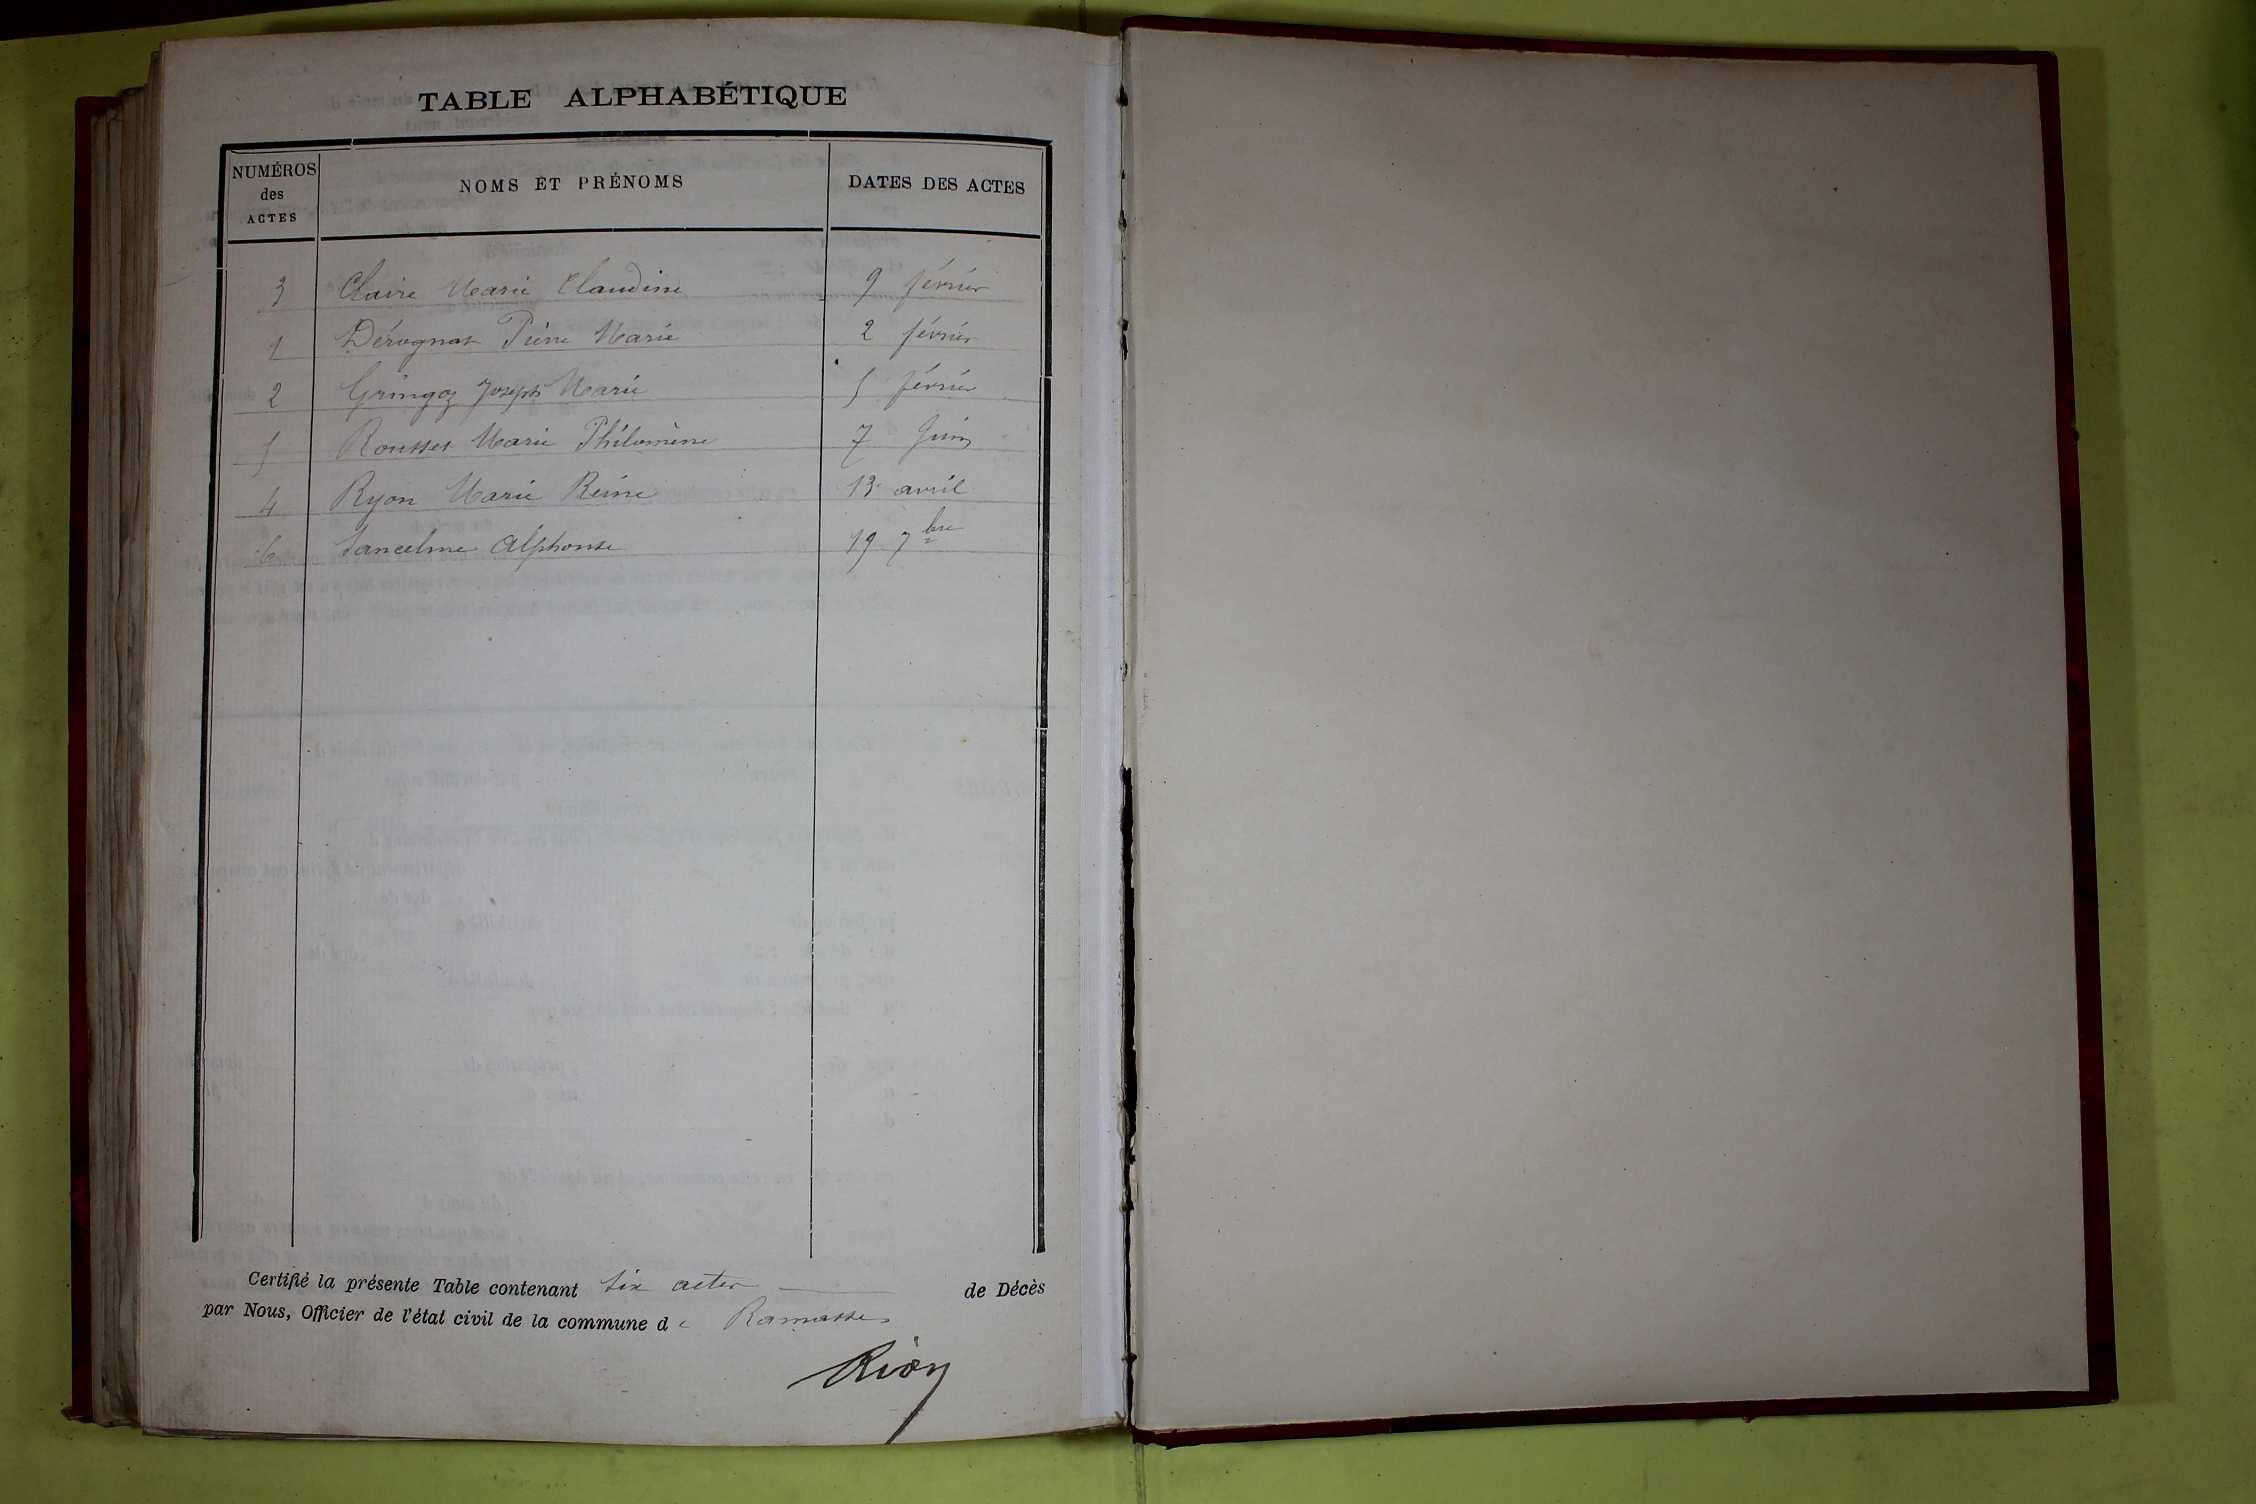 TABLE ALPHABÉTIQUE
NUMÉROS des ACTES NOMS ET PRÉNOMS DATES DES ACTES
3 Claire Marie Claudine 9 février
1 Dérognat Pierre Marie 2 février
2 Gringoz Joseph Marie 5 février
5 Rousset Marie Philomène 7 Juin
4 Ryon Marie Reine 13 avril
6 Sancelme Alphonse 19 7bre
Certifié la présente Table contenant six actes de Décès
par Nous, Officier de l'état civil de la commune de Ramasse
Rion